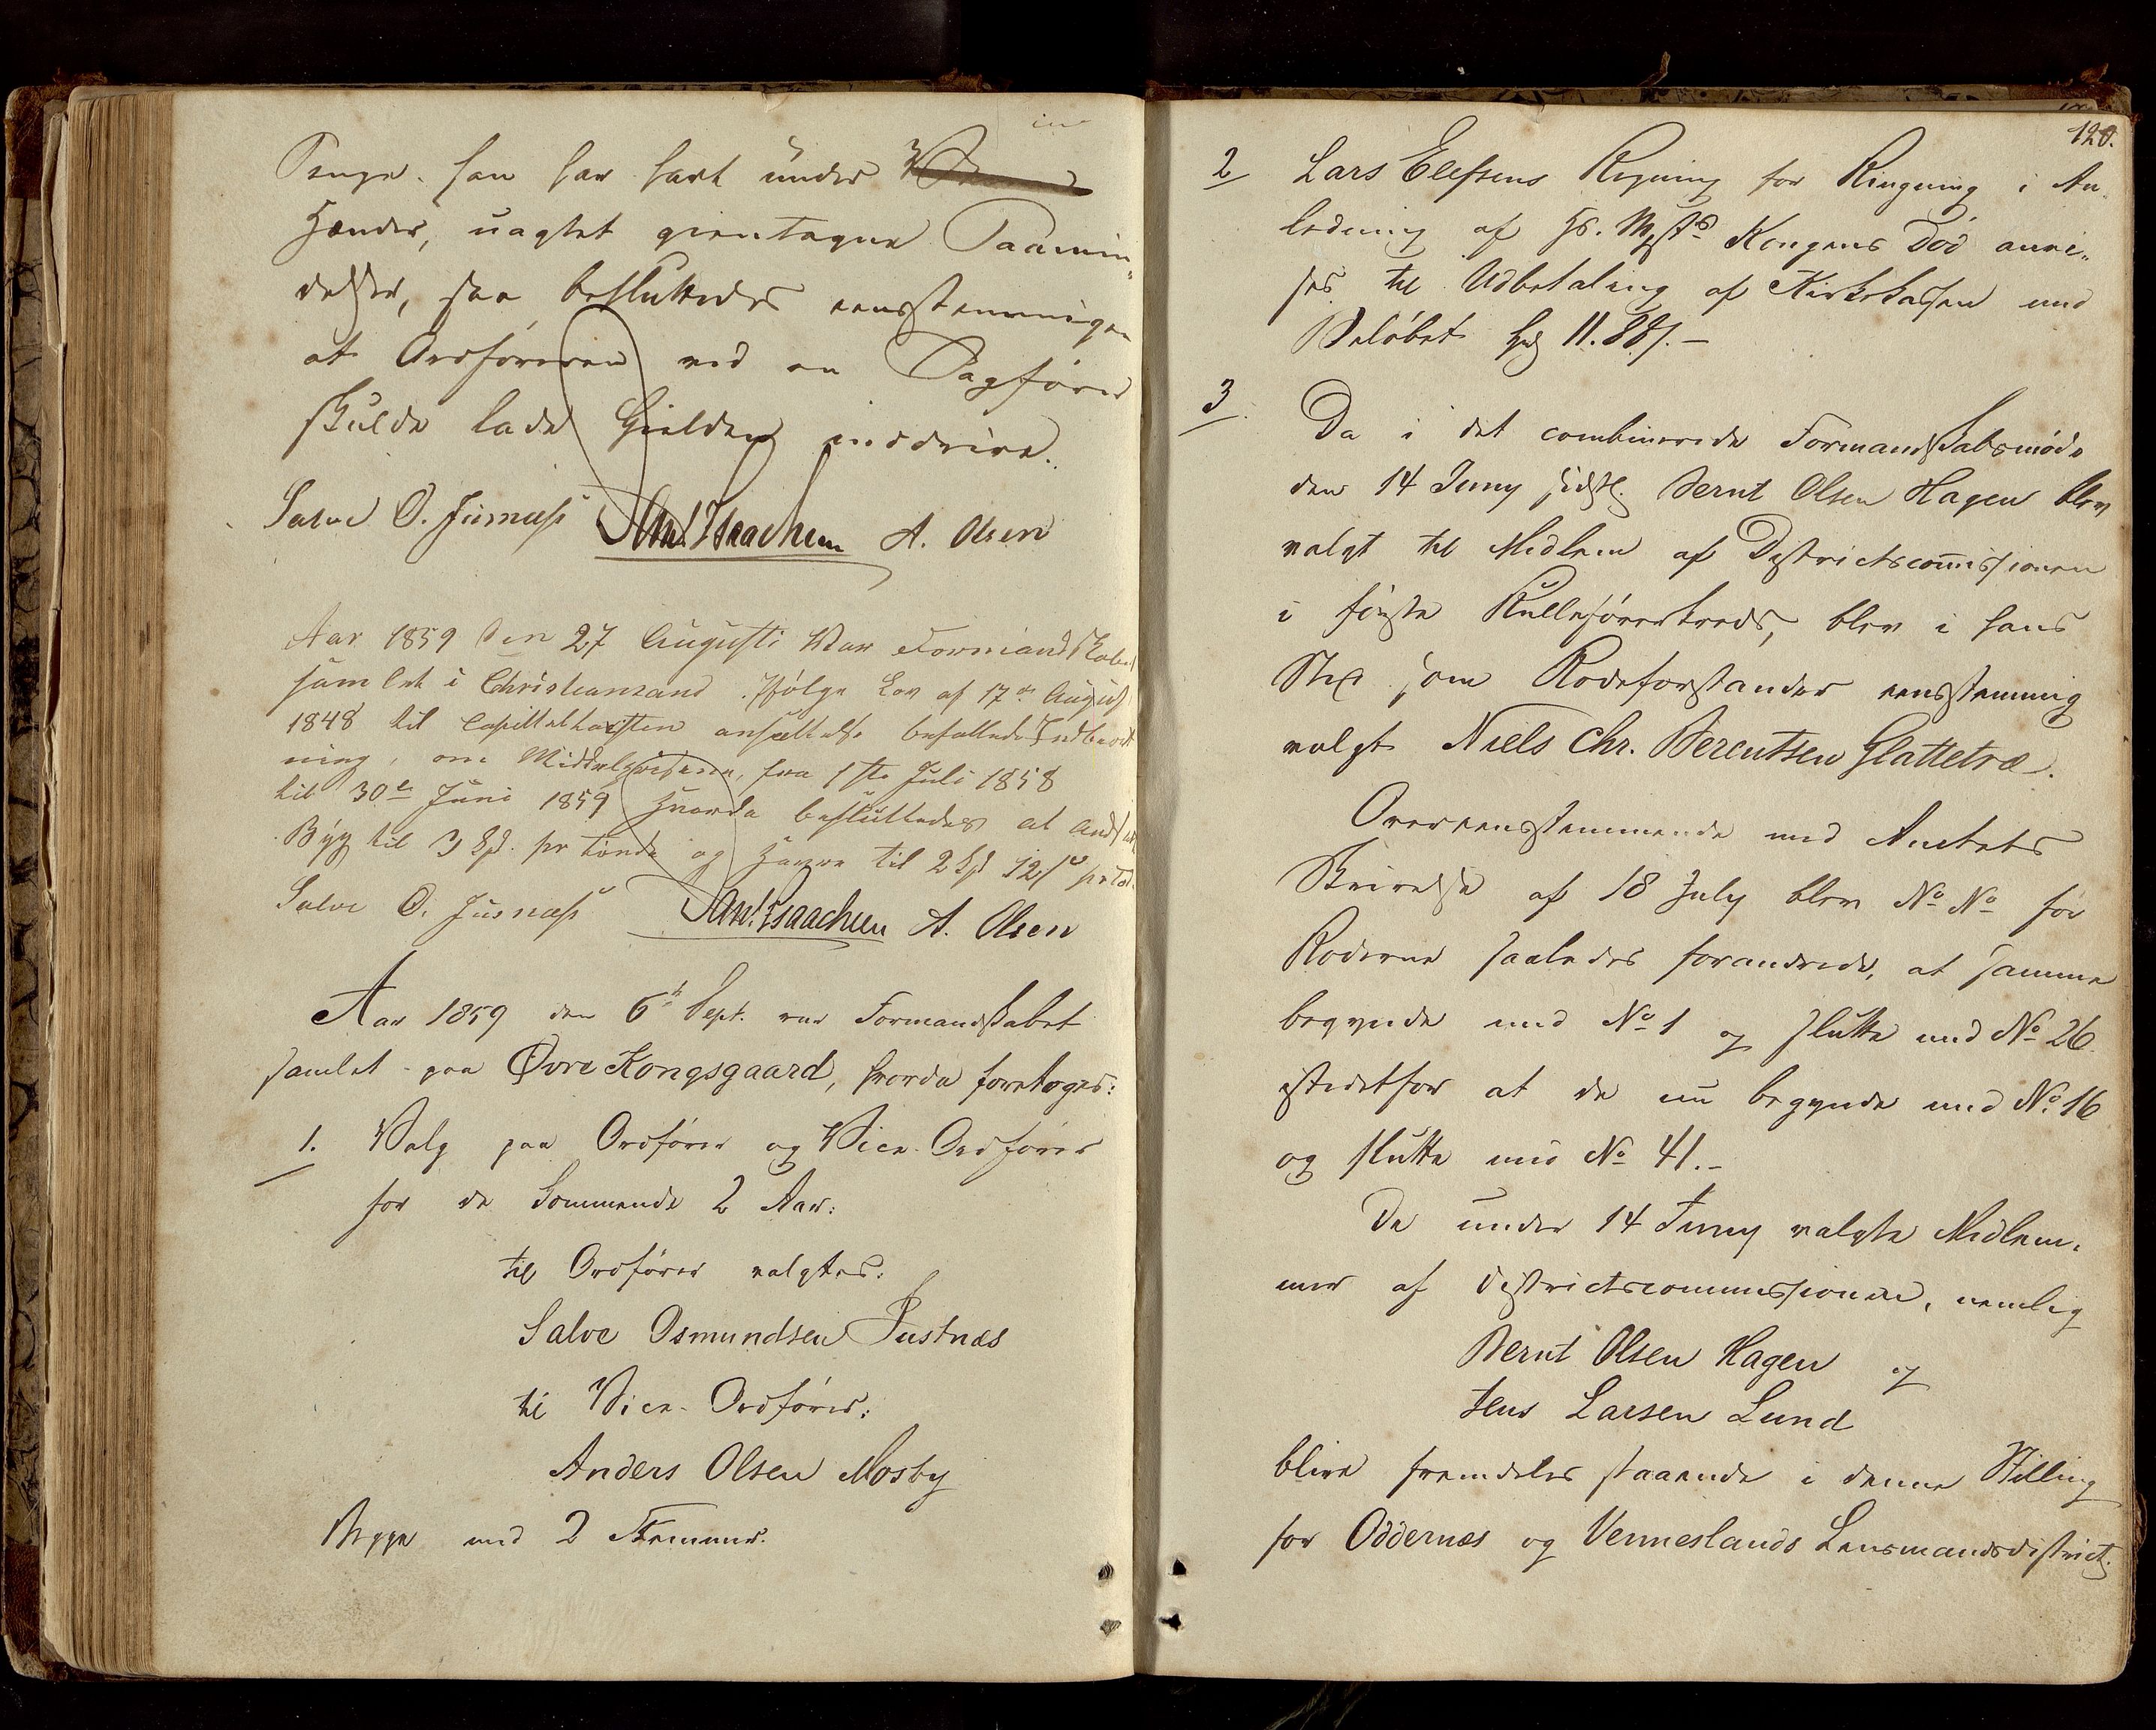 Penge. han har havt under
Hænder, uagtet gientagne Paamin„
delser, saa besluttedes eensstemmigen
at Ordføreren ved en Sagfører
skulde lade Gielden inddrive.
Salve O. Jusnæss Ant. Isaachsen A. Olsen
Aar 1859 den 27 Augusti War Formandskabet
samlet i Christiansand Ifølge Lov af 17de August
1848 til Capitteltaxsten ansættelse befalled Indberet
ning, om Middelprisene, fra 1ste Juli 1858
til 30te Juni 1859 Hvorda besluttedes at ansætte
Byg til 3 Spd. pr tønde og Havre til 2 Spd 12 s pr Td.
Salve O. Jusnæss Ant. Isaachsen A. Olsen
Aar 1859 den 6te Sept. var Formandskabet
samlet paa Øvre Kongsgaard, hvorda foretoges:
1. Valg paa Ordfører og Vice-Ordfører
for de kommende 2 Aar:
til Ordfører valgtes:
Salve Osmundsen Justnæs
til Vice-Ordfører:
Anders Olsen Mosby
Begge med 2 Stemmer.
120.
2 Lars Elefsens Regning for Ringning i An„
ledning af Hs. Mjsts Kongens Død anvi„
ses til Udbetaling af Kirkekassen med
Beløbet 11. 88/. —
3. Da i det combinerede Formandskabsmøde
den 14 Juny sidstl. Bernt Olsen Hagen blev
valgt til Medlem af Districtscommissionen
i første Rulleførerkreds, blev i hans
Sted som Rodeforstander eensstemmig
valgt Niels Chr. Berentsen Glattetræ.
Overeensstemmende med Amtets
Skrivelse af 18 July blev No. No. for
Roderne saaledes forandrede, at samme
begynde med No 1 og slutte med No 26.
istedetfor at de nu begynde med No. 16
og slutte med No 41. —
De under 14 Juny valgte Medlem„
mer af Districtscommissionen, nemlig
Bernt Olsen Hagen og
Jens Larsen Lund
blive fremdeles staaende i denne Stilling
for Oddernæs og Venneslands Lensmandsdistrict.